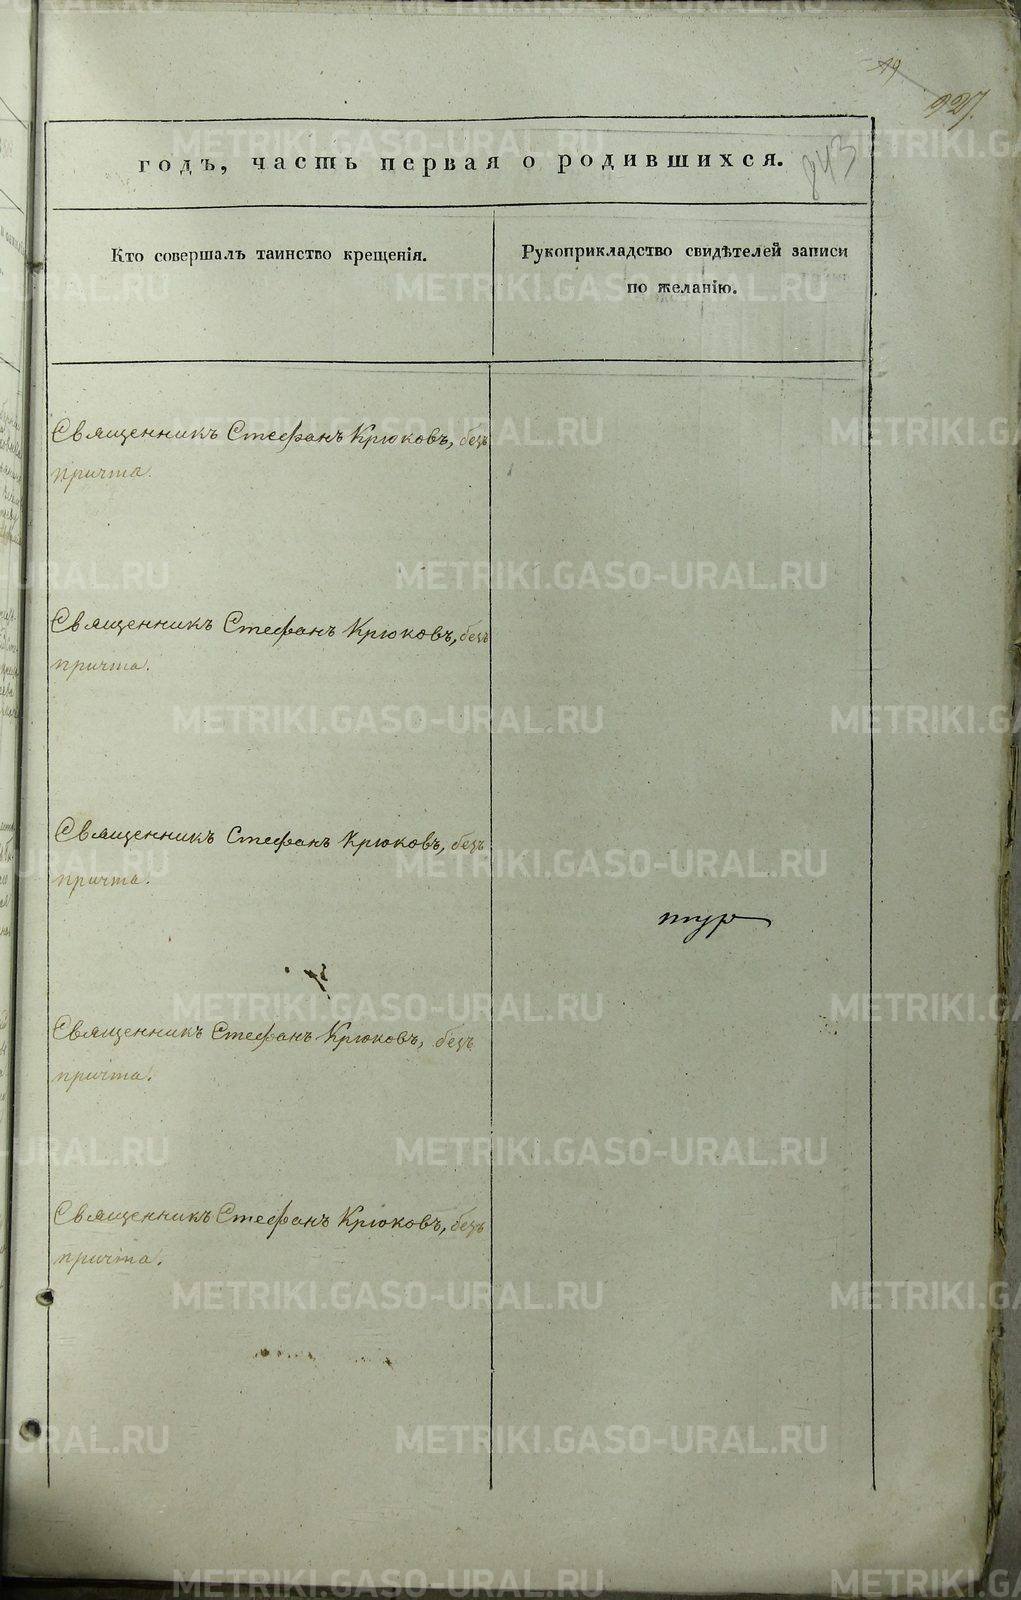 19
927.
843
годъ, часть первая о родившихся.
Кто совершалъ таинство крещенія.
Рукоприкладство свидѣтелей записи
по желанію.
Священникъ Стефанъ Крюковъ, безъ
причта.
Священникъ Стефанъ Крюковъ, безъ
причта.
Священникъ Стефанъ Крюковъ, безъ
причта.
Священникъ Стефанъ Крюковъ, безъ
причта.
Священникъ Стефанъ Крюковъ, безъ
причта.
METRIKI.GASO-URAL.RU